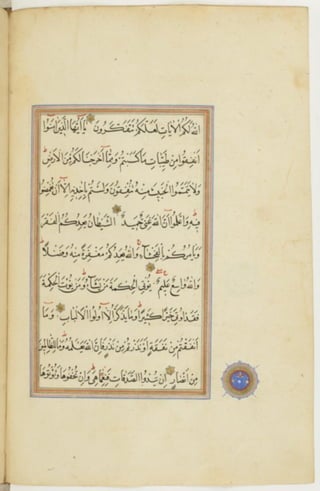 الله لكم الآيات لعلكم تتفكرون يا أيها الذين آمنوا
أنفقوا من طيبات ما كسبتم ومما أخرجنا لكم من الأرض
ولا تيمموا الخبيث منه تنفقون ولستم بآخذيه إلا أن تغمضوا
فيه واعلموا أن الله غني حميد الشيطان يعدكم الفقر
ويأمركم بالفحشاء والله يعدكم مغفرة منه وفضلا
والله واسع عليم يؤتي الحكمة من يشاء ومن يؤت الحكمة
فقد أوتي خيرا كثيرا وما يذكر إلا أولوا الألباب وما
أنفقتم من نفقة أو نذرتم من نذر فإن الله يعلمه وما للظالمين
من أنصار إن تبدوا الصدقات فنعما هي وإن تخفوها وتؤتوها